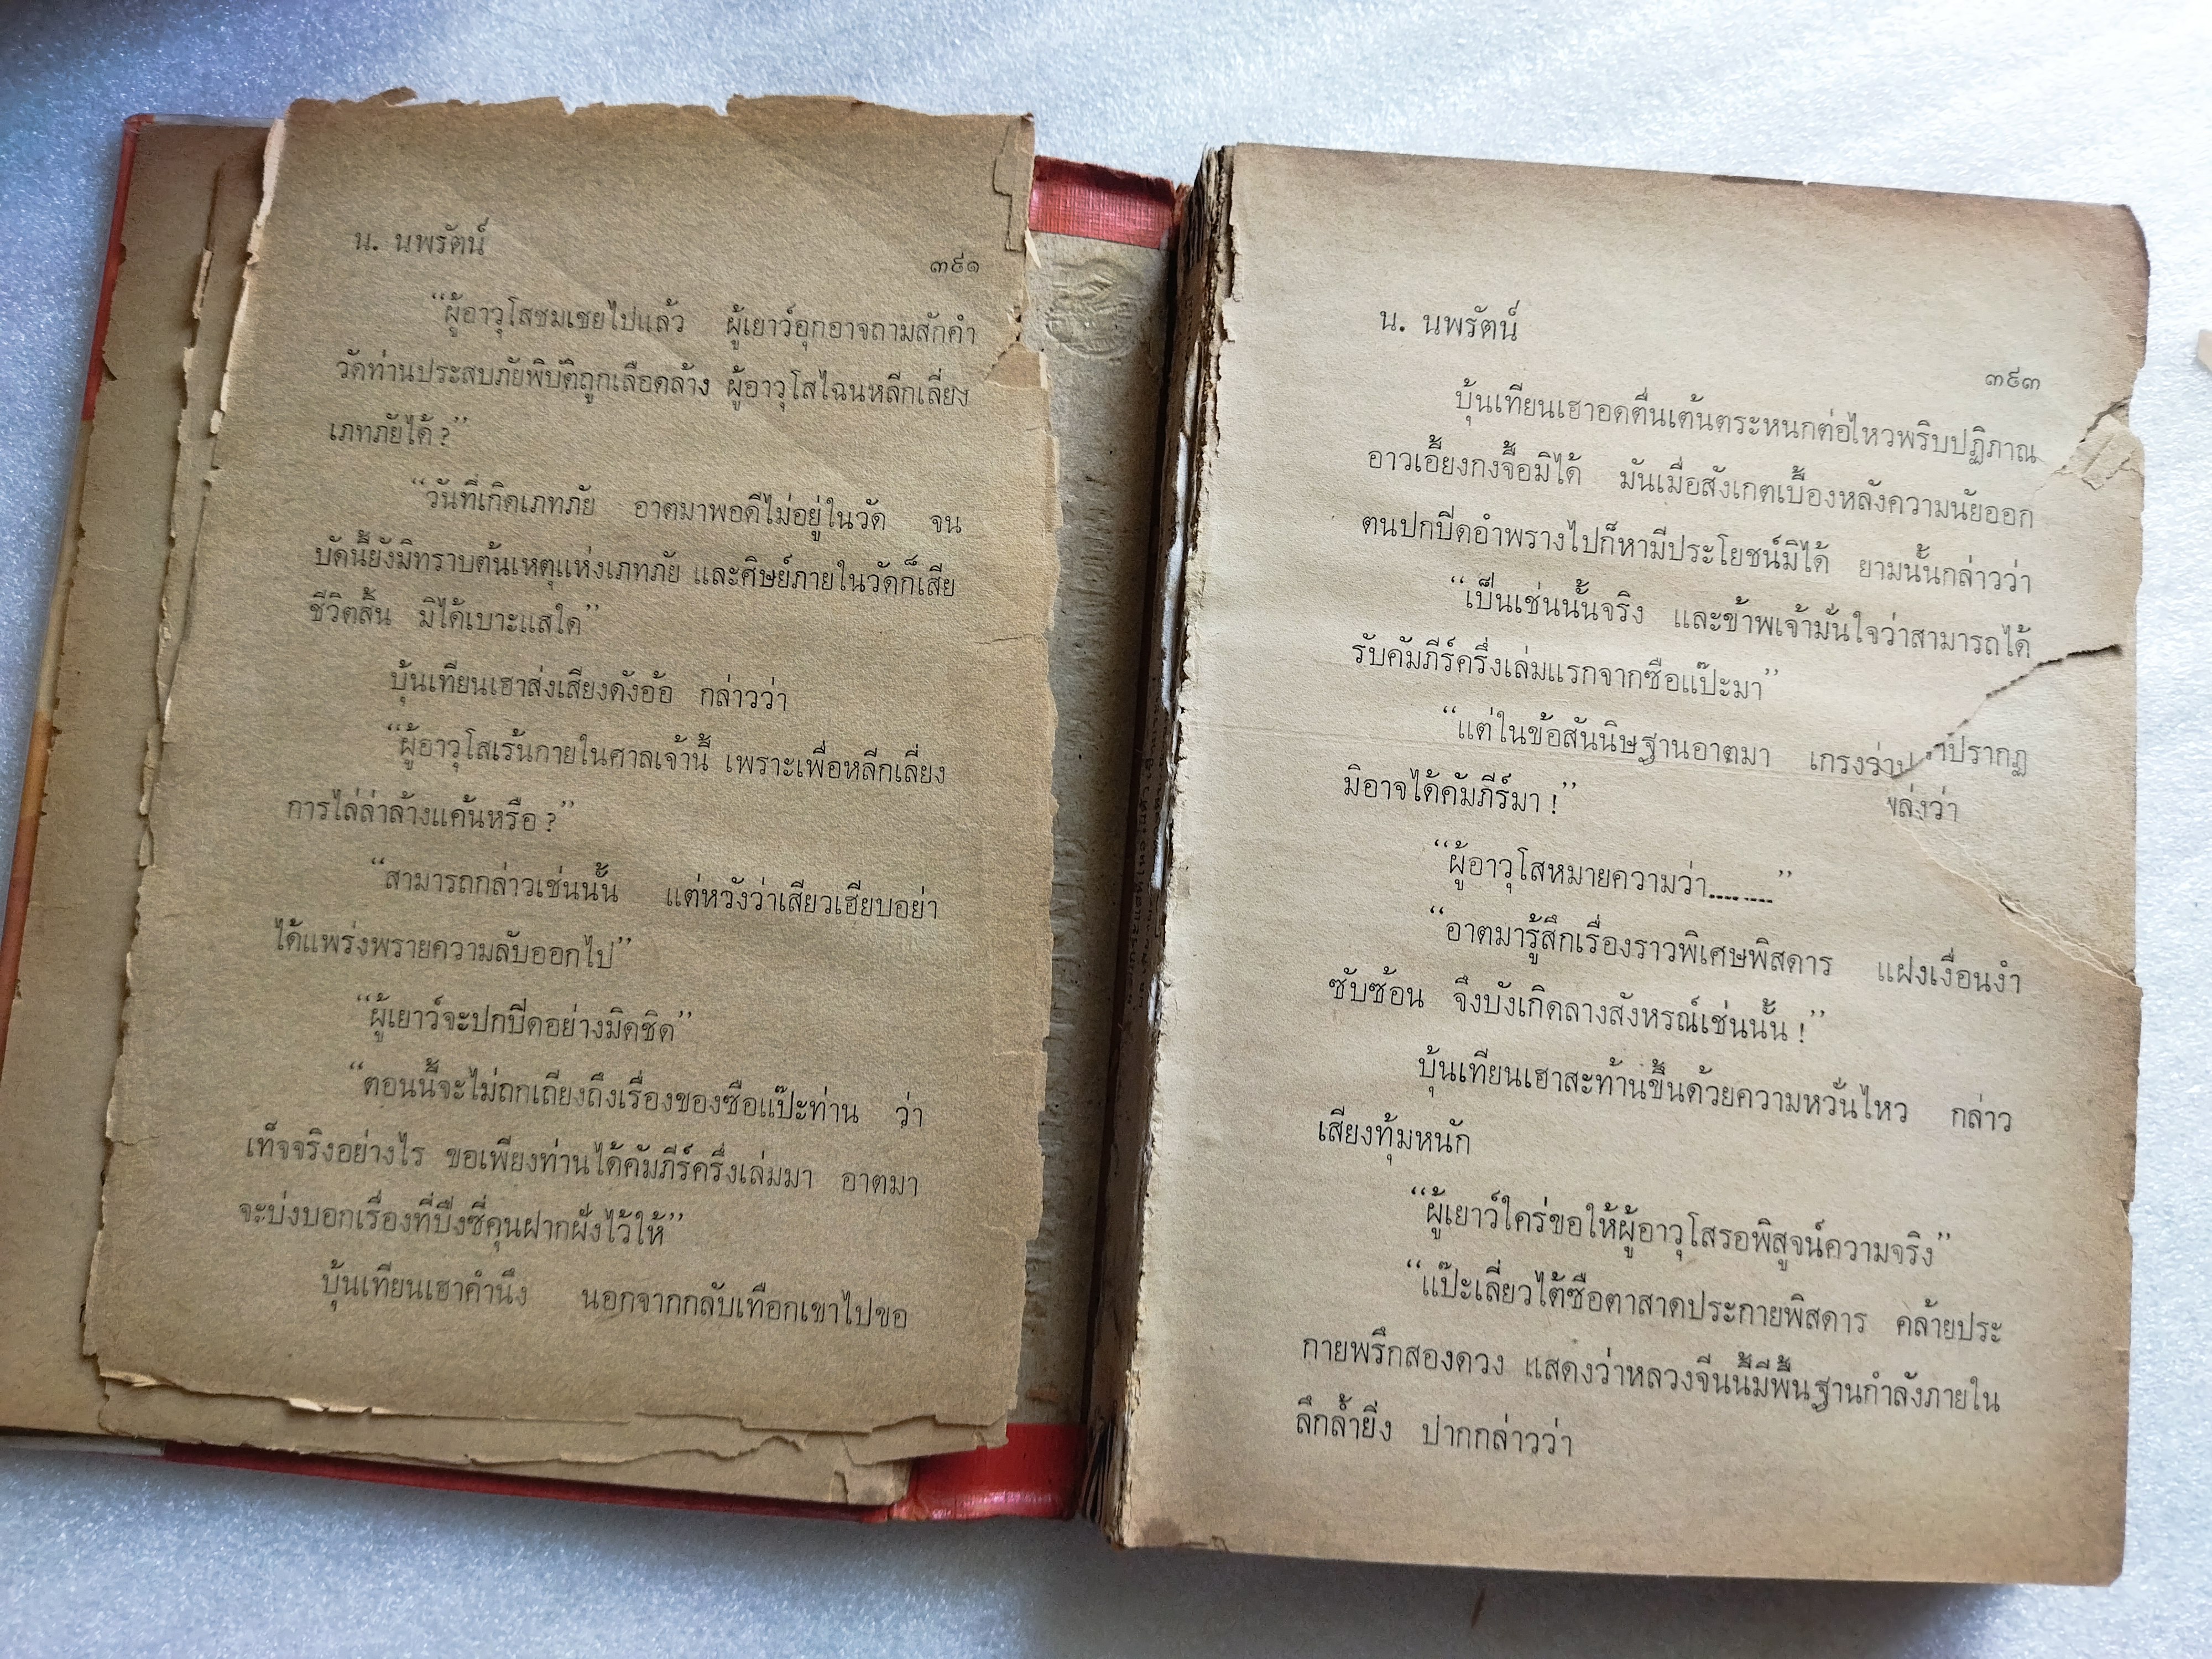 น. นพรัตน์
๓๙๑
“ผู้อาวุโสชมเชยไปแล้ว ผู้เยาว์อุกอาจถามสักคำ
วัดท่านประสบภัยพิบัติถูกเลือดล้าง ผู้อาวุโสไฉนหลีกเลี่ยง
เภทภัยได้?”
“วันที่เกิดเภทภัย อาตมาพอดีไม่อยู่ในวัด จน
บัดนี้ยังมิทราบต้นเหตุแห่งเภทภัย และศิษย์ภายในวัดก็เสีย
ชีวิตสิ้น มิได้เบาะแสใด”
บุ้นเทียนเฮาส่งเสียงดังอ้อ กล่าวว่า
“ผู้อาวุโสเร้นกายในศาลเจ้านี้ เพราะเพื่อหลีกเลี่ยง
การไล่ล่าล้างแค้นหรือ?”
“สามารถกล่าวเช่นนั้น แต่หวังว่าเสียวเฮียบอย่า
ได้แพร่งพรายความลับออกไป”
“ผู้เยาว์จะปกปิดอย่างมิดชิด”
“ตอนนี้จะไม่ถกเถียงถึงเรื่องของซือแป๊ะท่าน ว่า
เท็จจริงอย่างไร ขอเพียงท่านได้คัมภีร์ครึ่งเล่มมา อาตมา
จะบ่งบอกเรื่องที่ปึงซี่คุนฝากฝังไว้ให้”
บุ้นเทียนเฮาคำนึง นอกจากกลับเทือกเขาไปขอ
น. นพรัตน์
๓๙๓
บุ้นเทียนเฮาอดตื่นเต้นตระหนกต่อไหวพริบปฏิภาณ
อาวเอี้ยงกงจื้อมิได้ มันเมื่อสังเกตเบื้องหลังความนัยออก
ตนปกปิดอำพรางไปก็หามีประโยชน์มิได้ ยามนั้นกล่าวว่า
“เป็นเช่นนั้นจริง และข้าพเจ้ามั่นใจว่าสามารถได้
รับคัมภีร์ครึ่งเล่มแรกจากซือแป๊ะมา”
“แต่ในข้อสันนิษฐานอาตมา เกรงว่าป ปรากฏ
มิอาจได้คัมภีร์มา!” ล่งว่า
“ผู้อาวุโสหมายความว่า.........”
“อาตมารู้สึกเรื่องราวพิเศษพิสดาร แฝงเงื่อนงำ
ซับซ้อน จึงบังเกิดลางสังหรณ์เช่นนั้น!”
บุ้นเทียนเฮาสะท้านขึ้นด้วยความหวั่นไหว กล่าว
เสียงทุ้มหนัก
“ผู้เยาว์ใคร่ขอให้ผู้อาวุโสรอพิสูจน์ความจริง”
“แป๊ะเลี่ยวไต้ซือตาสาดประกายพิสดาร คล้ายประ
กายพรึกสองดวง แสดงว่าหลวงจีนนี้มีพื้นฐานกำลังภายใน
ลึกล้ำยิ่ง ปากกล่าวว่า